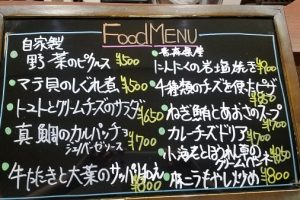 Food MENU
自家製
野菜のピクルス ¥500
マテ貝のしぐれ煮 ¥500
トマトとクリームチーズのサラダ ¥650
真鯛のカルパッチョ
ジェノバーゼソース ¥700
牛たたきと大葉のサッパリあえ ¥800
にんにくの岩塩焼き ¥700
4種類のチーズを使ったピザ ¥850
ねぎ鮪とあおさのスープ ¥700
カレーチーズドリア ¥700
小海老とほうれん草の
クリームパスタ ¥850
豚ニラもやし炒め ¥800